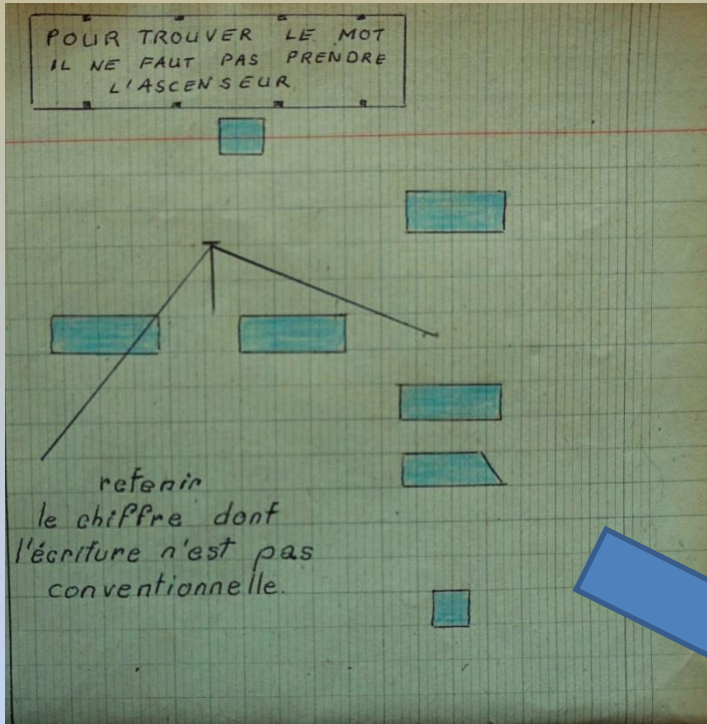 POUR TROUVER LE MOT
IL NE FAUT PAS PRENDRE
L'ASCENSEUR
retenir
le chiffre dont
l'écriture n'est pas
conventionnelle.